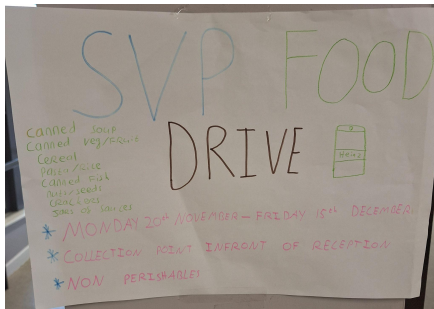 SVP FOOD
DRIVE
Canned soup
Canned veg/fruit
Cereal
Pasta/Rice
Canned fish
Nuts/seeds
Crackers
Jars of sauces
Heinz
* MONDAY 20th NOVEMBER - FRIDAY 15th DECEMBER.
* COLLECTION POINT INFRONT OF RECEPTION
* NON PERISHABLES